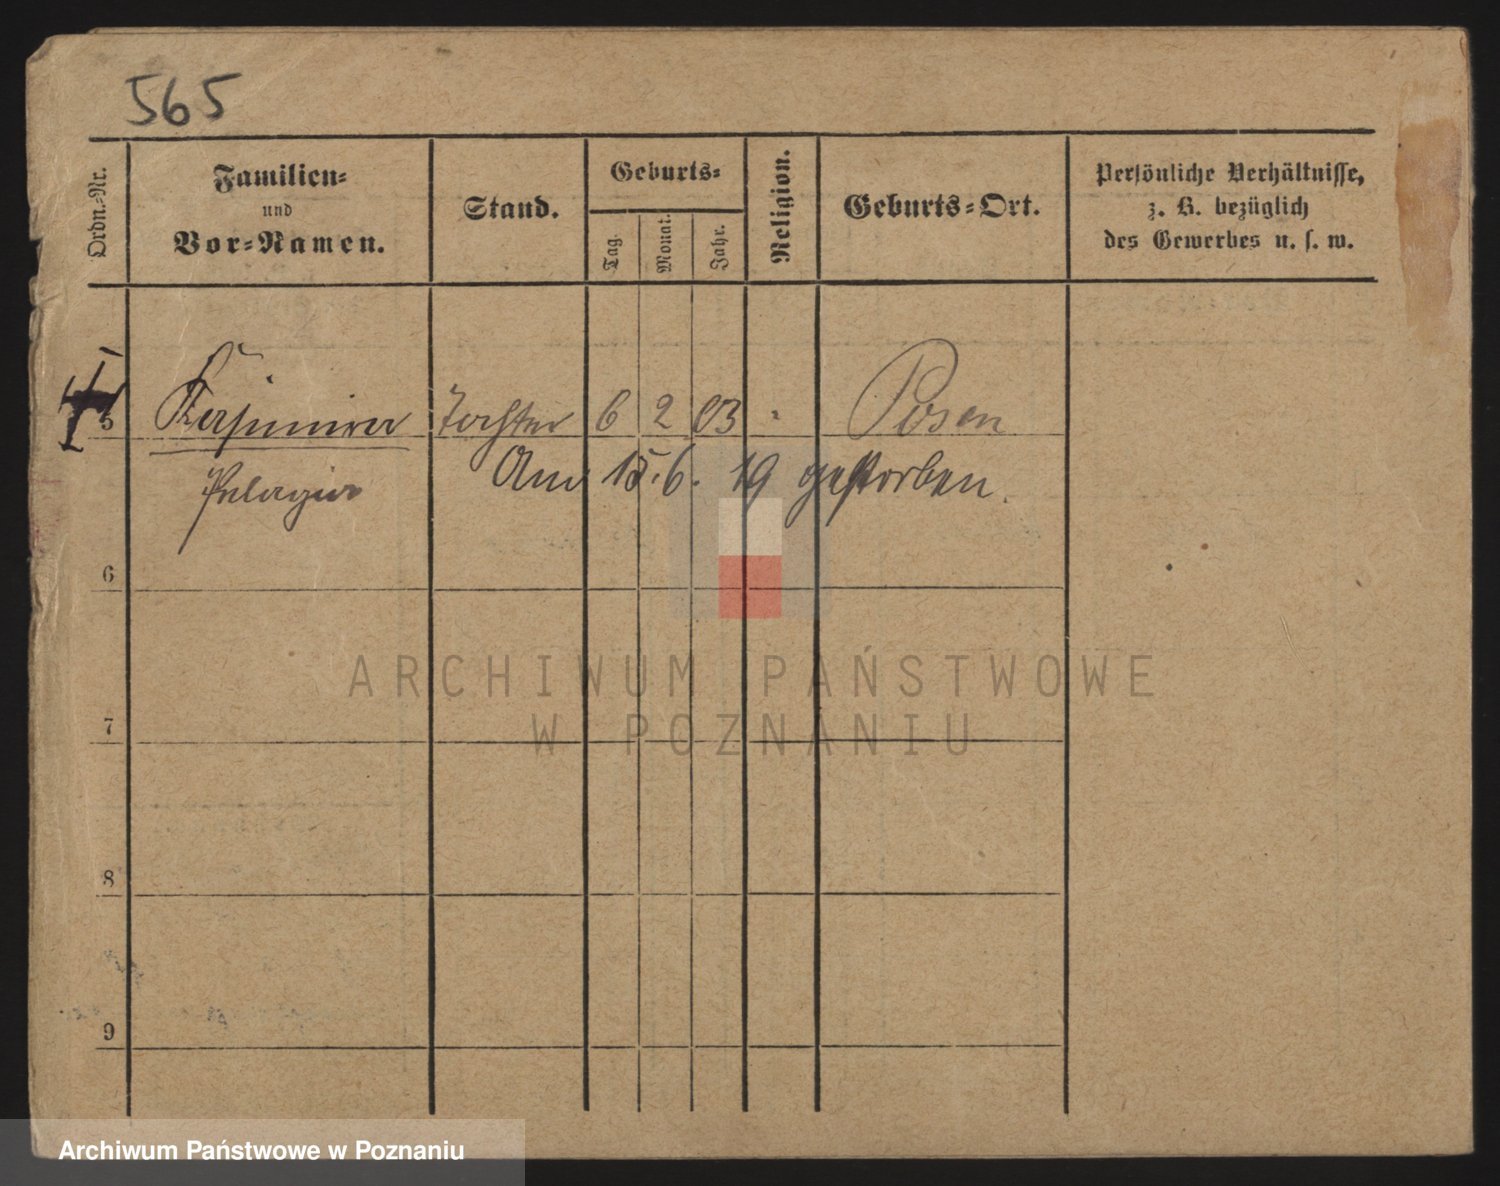 565
Ordn.-Nr.
Familien-
und
Vor-Namen.
Stand.
Geburts-
Tag.
Monat.
Jahr.
Religion.
Geburts-Ort.
Persönliche Verhältnisse,
z. B. bezüglich
des Gewerbes u. s. w.
5 Kasimira Tochter 6 2 03 " Posen
Pelagia
Am 15. 6. 19 gestorben.
6
7
8
9
ARCHIWUM PAŃSTWOWE
W POZNANIU
Archiwum Państwowe w Poznaniu